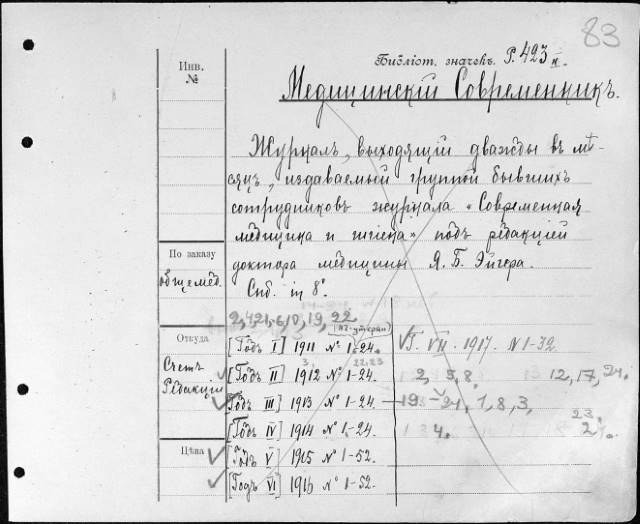 83
Библіот. значекъ. Р.423
Инв.
№
Медицинскій Современникъ.
Журналъ, выходящій дважды въ мѣ-
сяцъ, издаваемый группой бывшихъ
сотрудниковъ журнала «Современная
медицина и гигіена» подъ редакціей
доктора медицины Я. Б. Эйгера.
Спб. in 8°.
По заказу
общемед.
2,4,21,6,10,19,22
Откуда
Счетъ
Редакціи
[Годъ I] 1911 № 1-24.
VII. 1917. N 1-32.
22,23
[Годъ II] 1912 № 1-24.
2, 5, 8.
12, 17, 24.
Годъ III] 1913 № 1-24.
19 - 21, 1, 8, 3,
23.
[Годъ IV] 1914 № 1-24.
Цѣна
[Годъ V] 1915 № 1-52.
[Годъ VI] 1916 № 1-52.